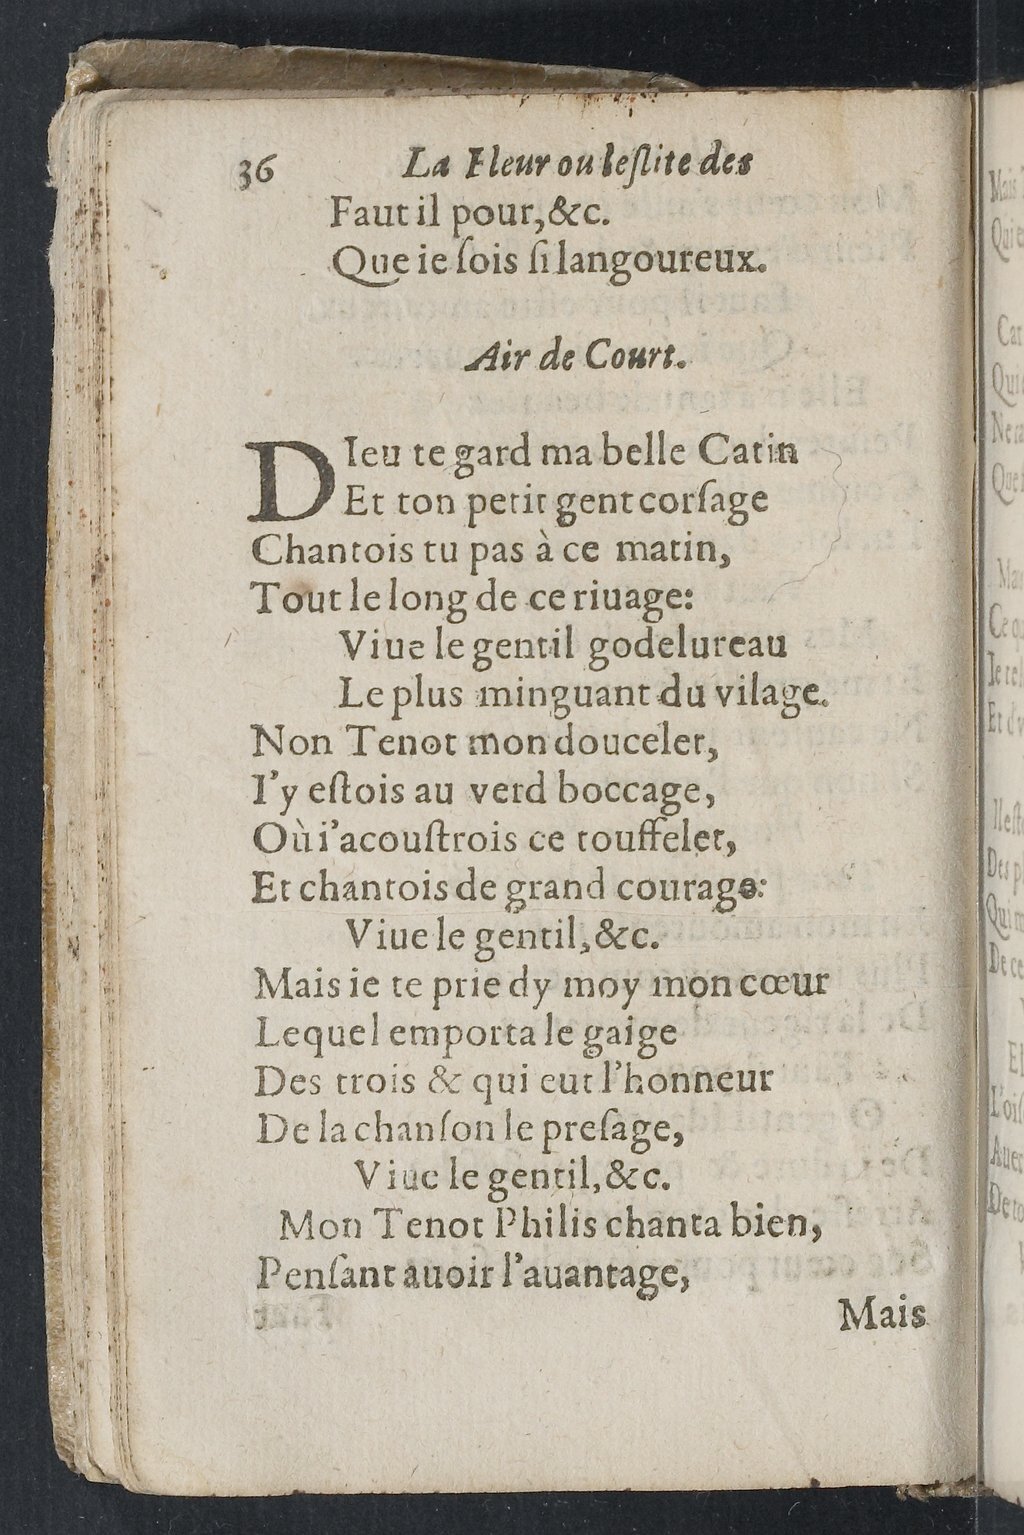 36 La Fleur ou leſlite des
Faut il pour,&c.
Que ie ſois ſi langoureux.
Air de Court.
DIeu te gard ma belle Catin
Et ton petit gent corſage
Chantois tu pas à ce matin,
Tout le long de ce riuage:
Viue le gentil godelureau
Le plus minguant du vilage.
Non Tenot mon doucelet,
I'y eſtois au verd boccage,
Où i'acouſtrois ce touffelet,
Et chantois de grand courage:
Viue le gentil,&c.
Mais ie te prie dy moy mon cœur
Lequel emporta le gaige
Des trois & qui eut l'honneur
De la chanſon le preſage,
Viue le gentil,&c.
Mon Tenot Philis chanta bien,
Penſant auoir l'auantage,
Mais